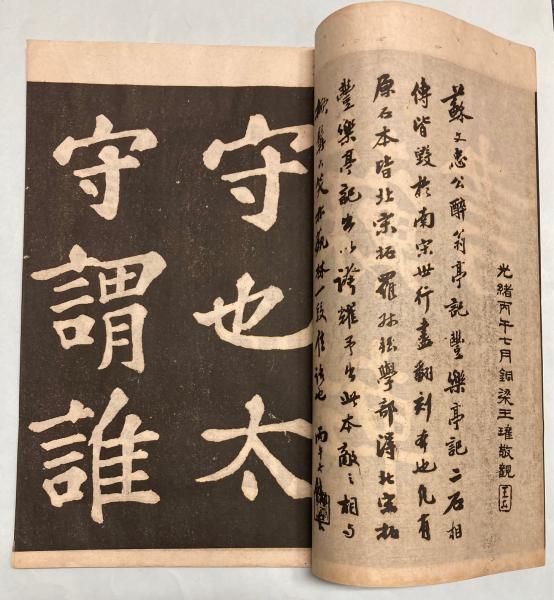 光緒丙午七月銅梁王瓘敬觀
蘇文忠公醉翁亭記豐樂亭記二石相
傳皆毀於南宋世行盡翻刻本也凡有
原石本皆北宋拓羅叔韞學部得北宋拓
豐樂亭記出以誇耀予出此本敵之相與
掀髯大笑亦藝林一段佳話也 丙午七
守也太
守謂誰